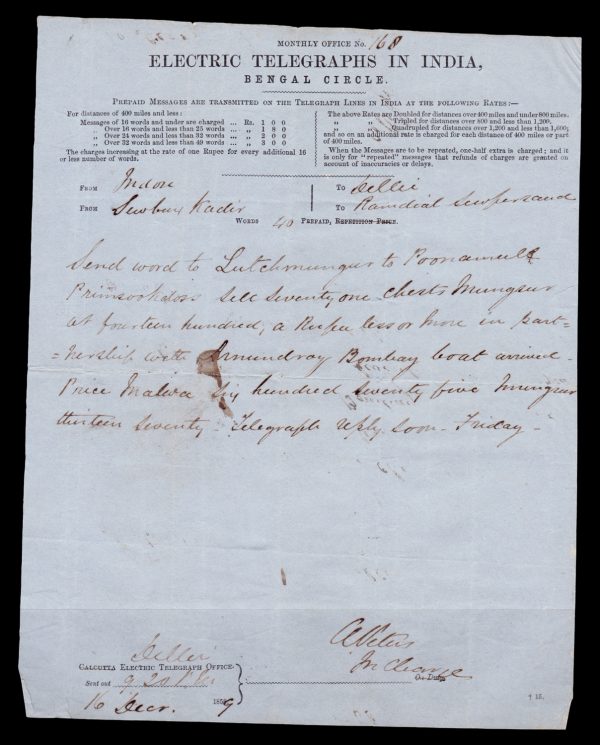 MONTHLY OFFICE No. 168
ELECTRIC TELEGRAPHS IN INDIA,
BENGAL CIRCLE.
PREPAID MESSAGES ARE TRANSMITTED ON THE TELEGRAPH LINES IN INDIA AT THE FOLLOWING RATES:—
For distances of 400 miles and less:
Messages of 16 words and under are charged ... Rs. 1 0 0
„ Over 16 words and less than 25 words ... „ 1 8 0
„ Over 24 words and less than 32 words ... „ 2 0 0
„ Over 32 words and less than 49 words ... „ 3 0 0
The charges increasing at the rate of one Rupee for every additional 16
or less number of words.
The above Rates are Doubled for distances over 400 miles and under 800 miles.
„ Tripled for distances over 800 and less than 1,200.
„ Quadrupled for distances over 1,200 and less than 1,600;
and so on an additional rate is charged for each distance of 400 miles or part
of 400 miles.
When the Messages are to be repeated, one-half extra is charged; and it
is only for "repeated" messages that refunds of charges are granted on
account of inaccuracies or delays.
FROM Indore TO Dellie
FROM Sewbux Kadir TO Ramdial Sewpersaud
WORDS 40 PREPAID, REPETITION PRICE.
Send word to Lutchmungur to Poonamull
Primsookdoss sell seventy one chests Mungsur
at fourteen hundred, a Rupee less or more in part=
=nership with Bombay boat arrived.
Price Malwa Six hundred seventy five Mungsur
thirteen seventy Telegraph reply soon - Friday -
Dellie
CALCUTTA ELECTRIC TELEGRAPH OFFICE.
Sent out 9 20
16 Decr. 1859
In Charge
On Duty